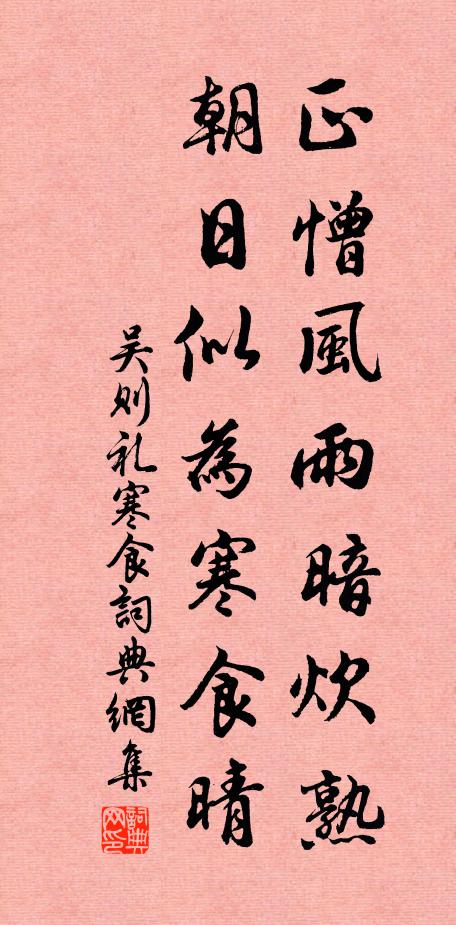 正憎風雨暗炊熟
朝日似為寒食晴
吴则礼寒食詞典網集
詞典网印